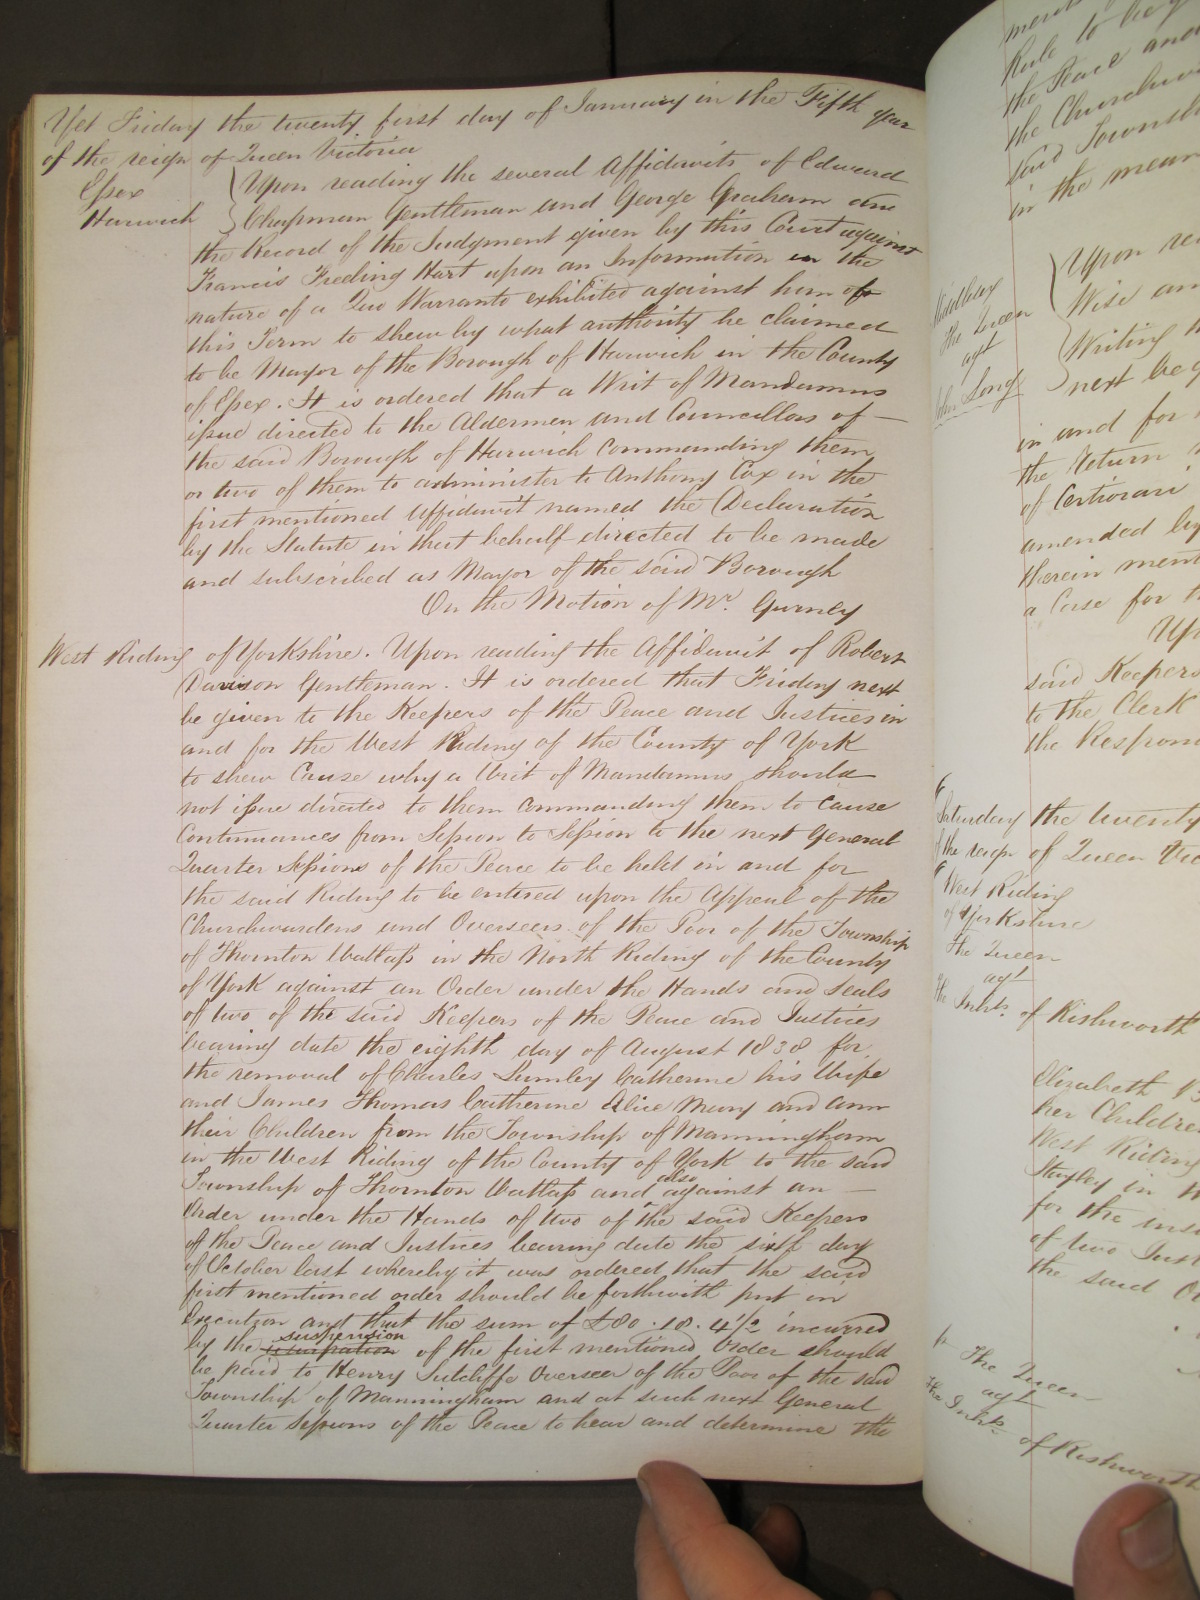 Yet Friday the twenty first day of January in the Fifth year
of the reign of Queen Victoria
Essex
Harwich
Upon reading the several Affidavits of Edward
Chapman Gentleman and George Graham and
the Record of the Judgment given by this Court against
Francis Freeling Hart upon an Information in the
nature of a Quo Warranto exhibited against him of
this Term to shew by what authority he claimed
to be Mayor of the Borough of Harwich in the County
of Essex. It is ordered that a Writ of Mandamus
issue directed to the Aldermen and Councillors of
the said Borough of Harwich Commanding them
or two of them to administer to Anthony Cox in the
first mentioned Affidavit named the Declaration
by the Statute in that behalf directed to be made
and subscribed as Mayor of the said Borough
On the Motion of Mr. Gurney
West Riding of Yorkshire. Upon reading the Affidavit of Robert
Davison Gentleman. It is ordered that Friday next
be given to the Keepers of the Peace and Justices in
and for the West Riding of the County of York
to shew Cause why a Writ of Mandamus should
not issue directed to them commanding them to cause
Continuances from Session to Session to the next General
Quarter Sessions of the Peace to be held in and for
the said Riding to be entered upon the Appeal of the
Churchwardens and Overseers of the Poor of the Township
of Thornton Watlass in the North Riding of the County
of York against an Order under the Hands and Seals
of two of the said Keepers of the Peace and Justices
bearing date the eighth day of August 1838 for
the removal of Charles Lumley Catherine his Wife
and James Thomas Catherine Alice Mary and Ann
their Children from the Township of Manningham
in the West Riding of the County of York to the said
Township of Thornton Watlass and also against an
Order under the Hands of two of the said Keepers
of the Peace and Justices bearing date the sixth day
of October last whereby it was ordered that the said
first mentioned order should be forthwith put in
Execution and that the sum of £80. 18. 4 1/2 incurred
by the suspension of the first mentioned Order should
be paid to Henry Sutcliffe Overseer of the Poor of the said
Township of Manningham and at such next General
Quarter Sessions of the Peace to hear and determine the
Rule to be
the Peace and
the
said
in the mean
Middlesex
the Queen
agt
John Long
Upon
Wise an
Writing
next be
in and for
the Return
of Certiorari
amended by
therein ment
a Case for
said Keepers
to the Clerk
the
Saturday the twenty
of the reign of Queen
West Riding
of Yorkshire
The Queen
agt
The Inhts. of Rishworth
Elizabeth
her Children
West Riding
in
for the
of two Just
the said
The Queen
agt
The Inhts. of Rishworth